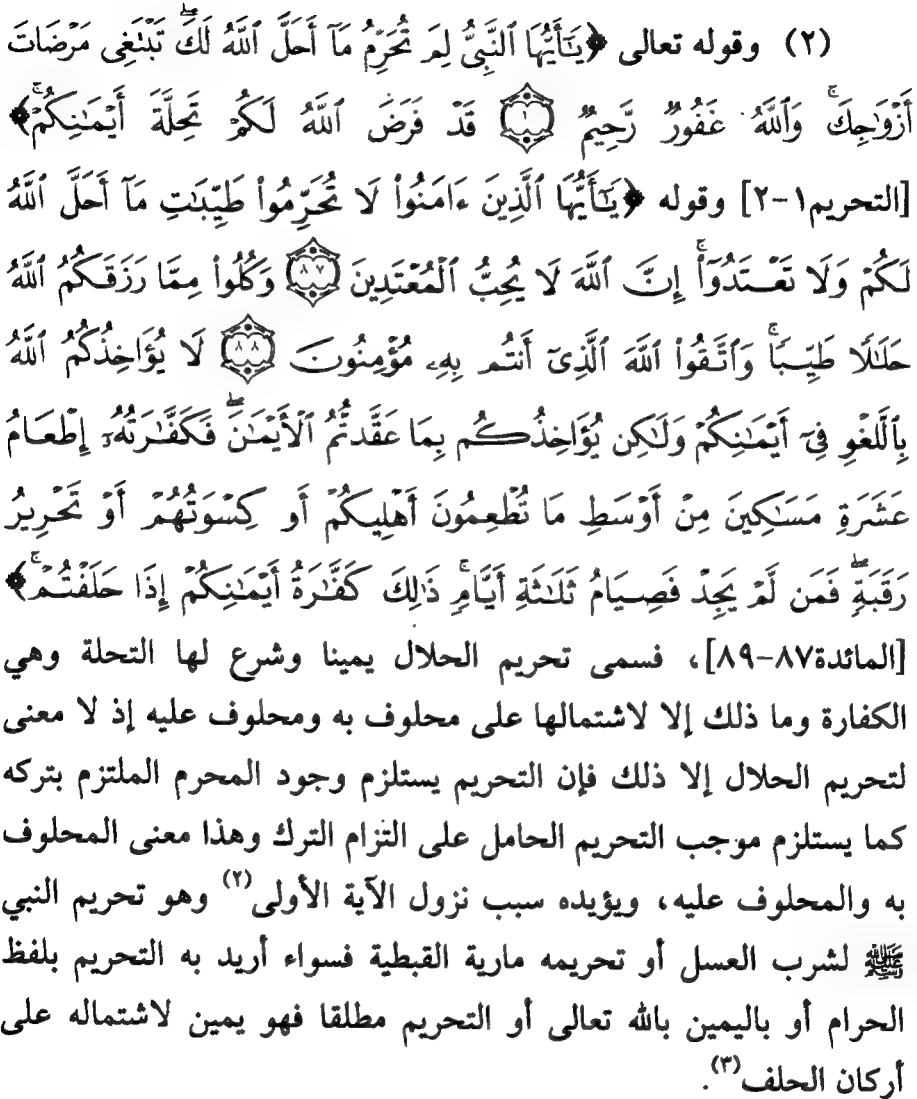 (٢) وقوله تعالى ﴿يَـٰٓأَيُّهَا ٱلنَّبِىُّ لِمَ تُحَرِّمُ مَآ أَحَلَّ ٱللَّهُ لَكَ ۖ تَبْتَغِى مَرْضَاتَ
أَزْوَٰجِكَ ۚ وَٱللَّهُ غَفُورٌ رَّحِيمٌ ١ قَدْ فَرَضَ ٱللَّهُ لَكُمْ تَحِلَّةَ أَيْمَـٰنِكُمْ ۚ﴾
[التحريم١-٢] وقوله ﴿يَـٰٓأَيُّهَا ٱلَّذِينَ ءَامَنُوا۟ لَا تُحَرِّمُوا۟ طَيِّبَـٰتِ مَآ أَحَلَّ ٱللَّهُ
لَكُمْ وَلَا تَعْتَدُوٓا۟ ۚ إِنَّ ٱللَّهَ لَا يُحِبُّ ٱلْمُعْتَدِينَ ٨٧ وَكُلُوا۟ مِمَّا رَزَقَكُمُ ٱللَّهُ
حَلَـٰلًا طَيِّبًا ۚ وَٱتَّقُوا۟ ٱللَّهَ ٱلَّذِىٓ أَنتُم بِهِۦ مُؤْمِنُونَ ٨٨ لَا يُؤَاخِذُكُمُ ٱللَّهُ
بِٱللَّغْوِ فِىٓ أَيْمَـٰنِكُمْ وَلَـٰكِن يُؤَاخِذُكُم بِمَا عَقَّدتُّمُ ٱلْأَيْمَـٰنَ ۖ فَكَفَّـٰرَتُهُۥٓ إِطْعَامُ
عَشَرَةِ مَسَـٰكِينَ مِنْ أَوْسَطِ مَا تُطْعِمُونَ أَهْلِيكُمْ أَوْ كِسْوَتُهُمْ أَوْ تَحْرِيرُ
رَقَبَةٍ ۖ فَمَن لَّمْ يَجِدْ فَصِيَامُ ثَلَـٰثَةِ أَيَّامٍ ۚ ذَٰلِكَ كَفَّـٰرَةُ أَيْمَـٰنِكُمْ إِذَا حَلَفْتُمْ ۚ﴾
[المائدة٨٧-٨٩]، فسمى تحريم الحلال يمينا وشرع لها التحلة وهي
الكفارة وما ذلك إلا لاشتمالها على محلوف به ومحلوف عليه إذ لا معنى
لتحريم الحلال إلا ذلك فإن التحريم يستلزم وجود المحرم الملتزم بتركه
كما يستلزم موجب التحريم الحامل على التزام الترك وهذا معنى المحلوف
به والمحلوف عليه، ويؤيده سبب نزول الآية الأولى(٢) وهو تحريم النبي
ﷺ لشرب العسل أو تحريمه مارية القبطية فسواء أريد به التحريم بلفظ
الحرام أو باليمين بالله تعالى أو التحريم مطلقا فهو يمين لاشتماله على
أركان الحلف(٣).